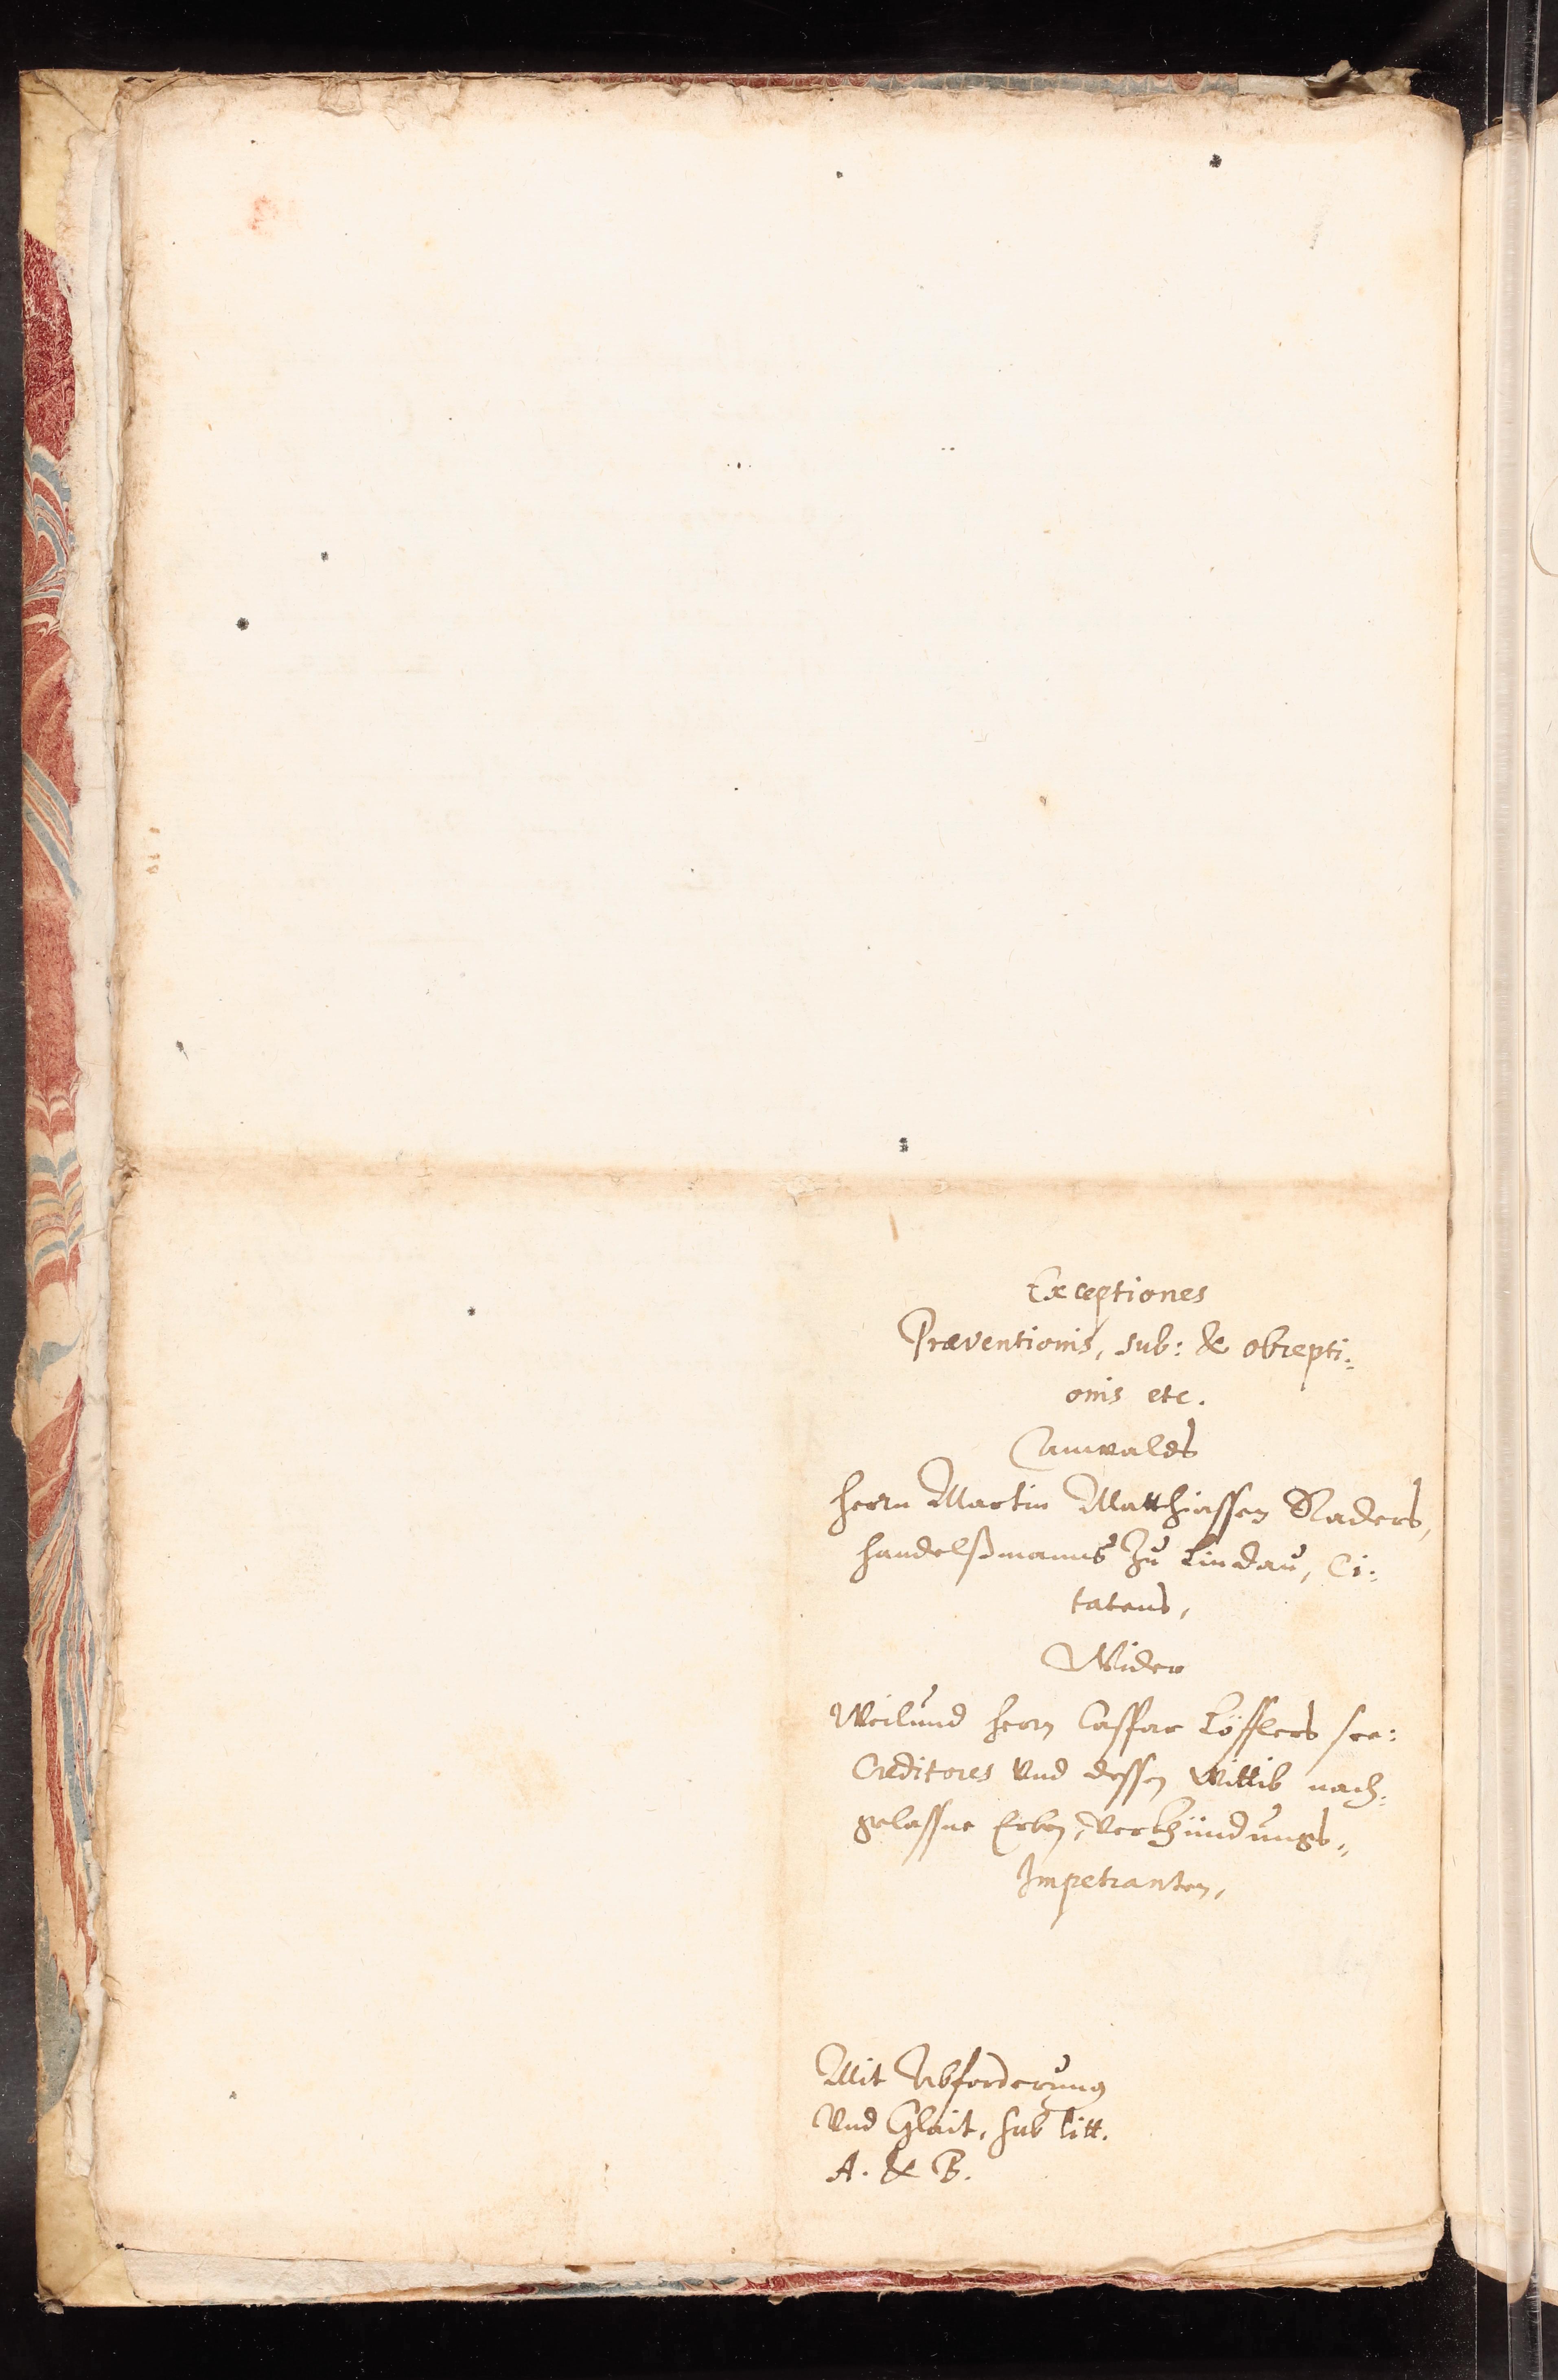 Exceptiones
Præventionis, sub: & obrepti:
onis etc.
Anwalds
Herrn Martin Matthiassen Raders,
Handelßmanns Zu Lindau, Ci:
tatens,
Wider
Weilund Herrn Caspar Löfflers see:
Creditores Vnd dessen Wittib nach:
gelassne Erben, Verkhündungs„
Impetranten,
Mit Abforderung
Vnd Glait, sub litt.
A. & B.